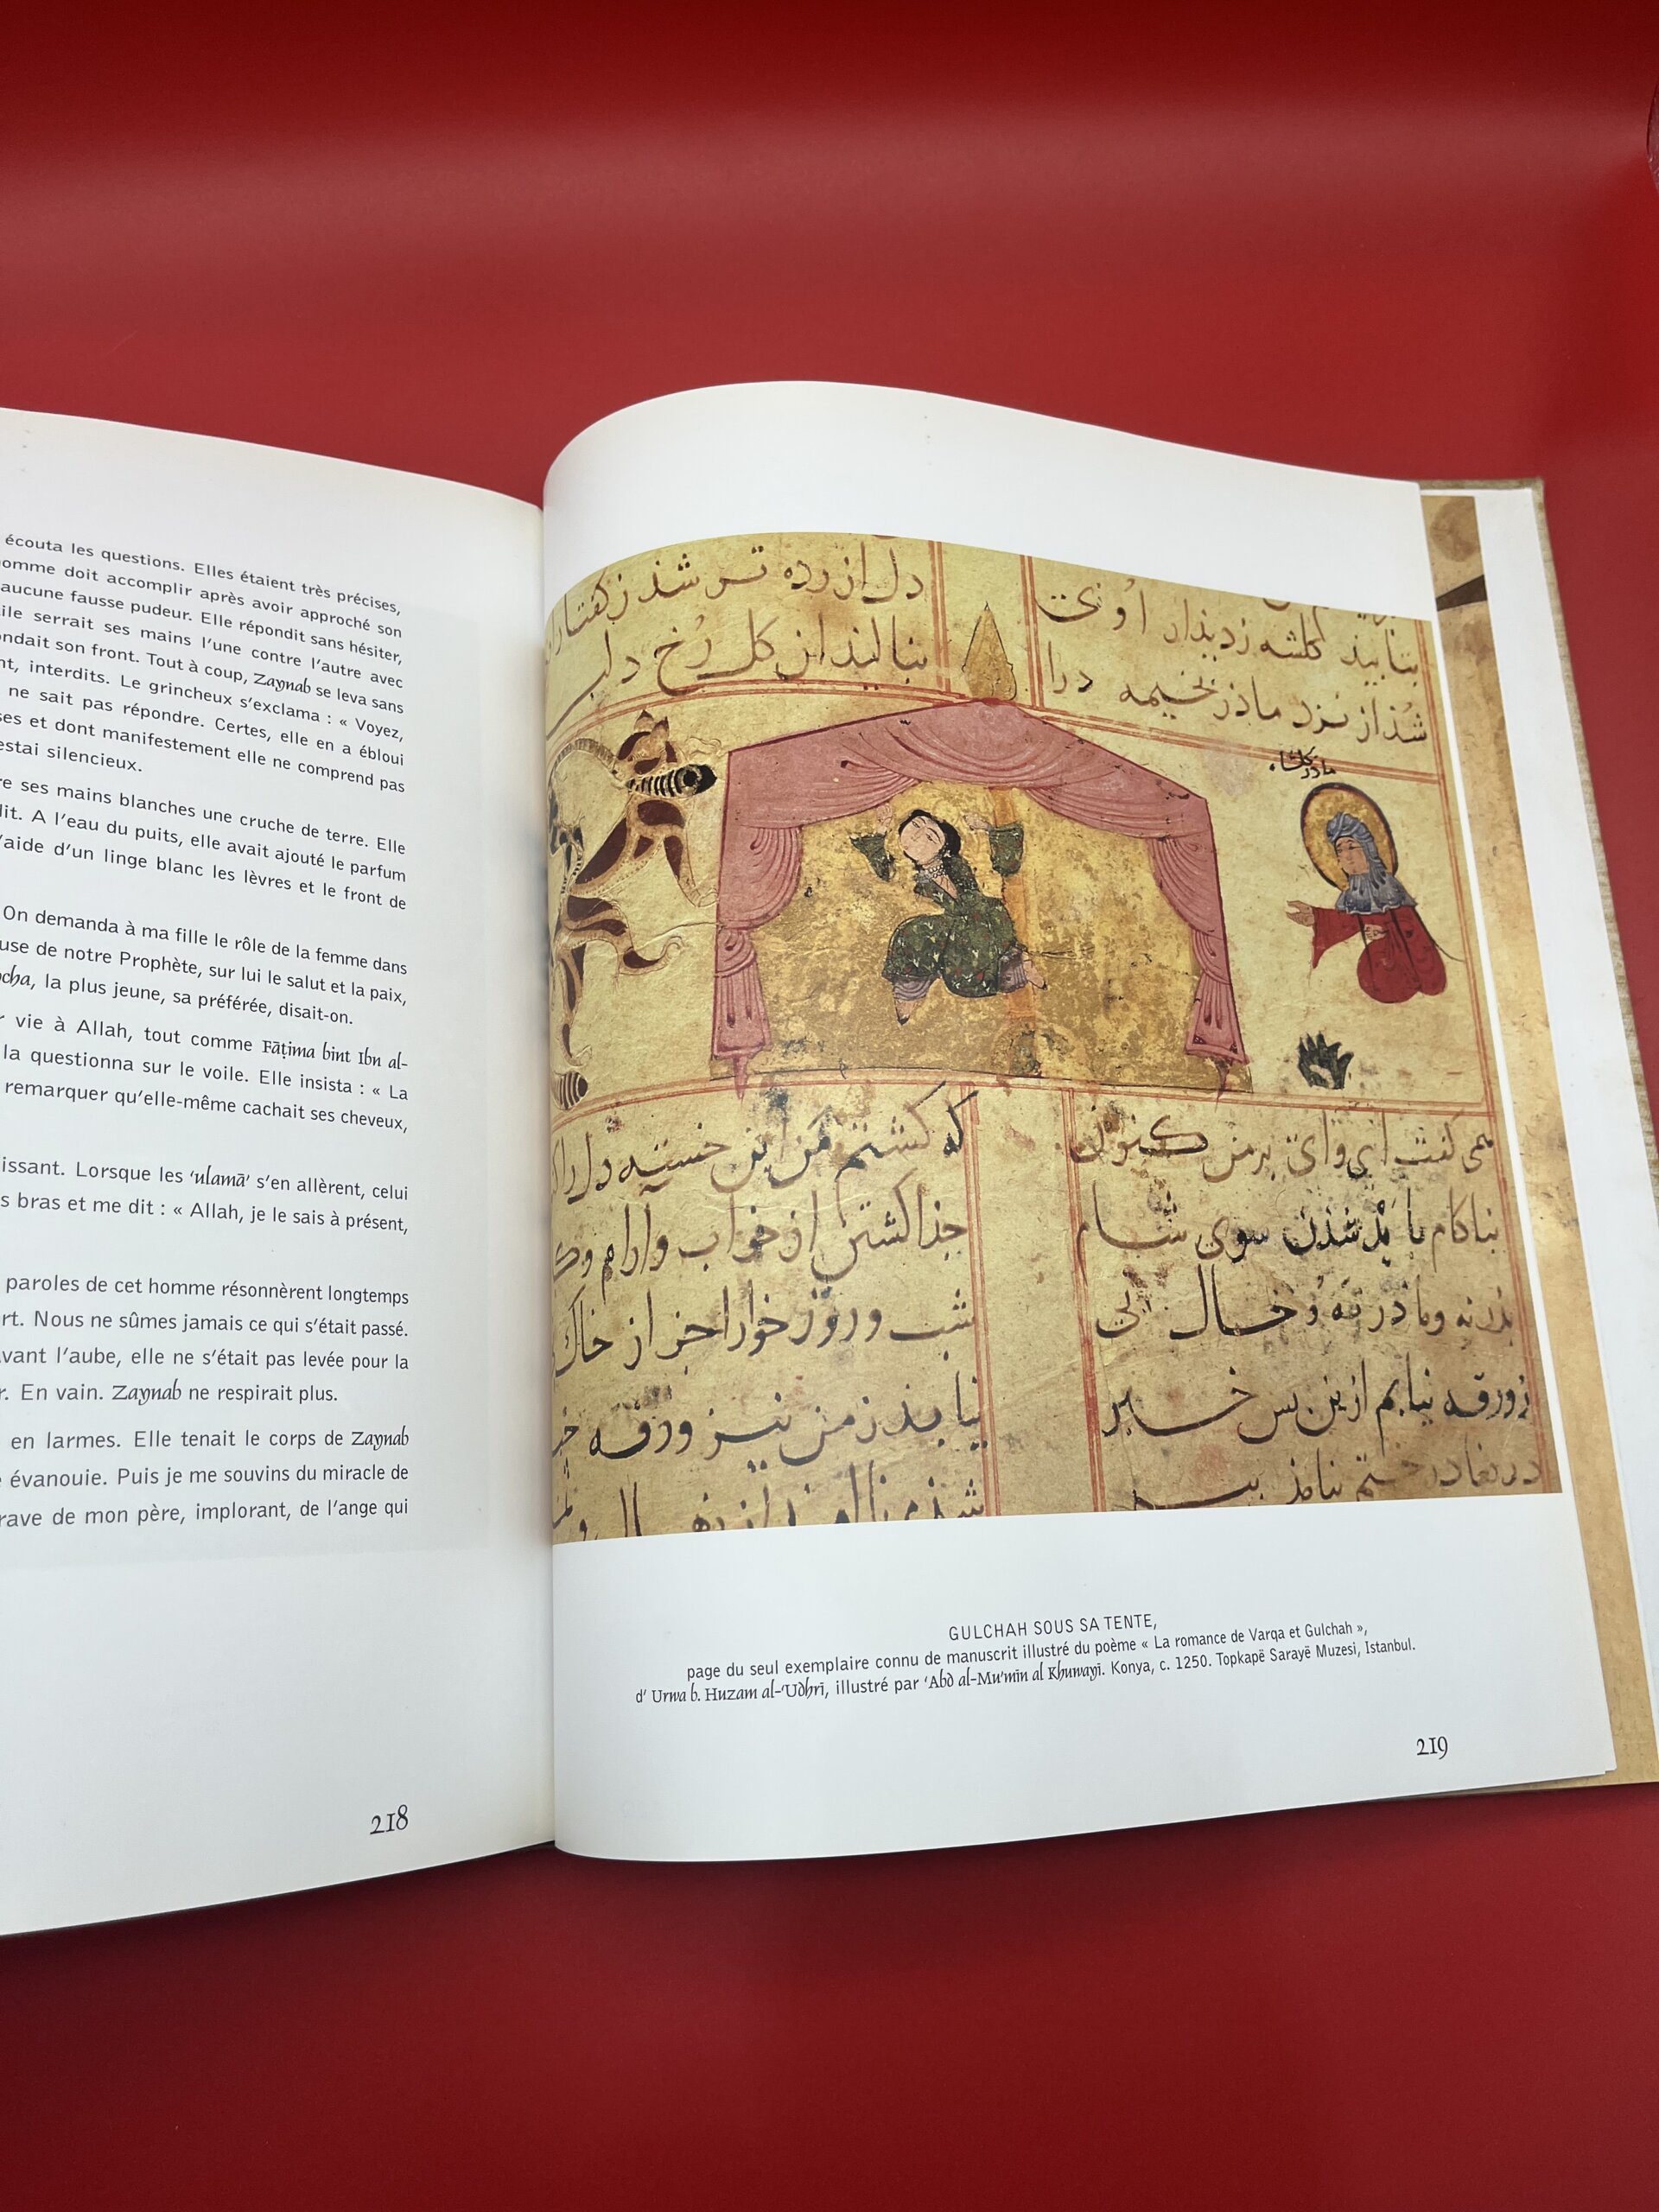 écouta les questions. Elles étaient très précises,
omme doit accomplir après avoir approché son
aucune fausse pudeur. Elle répondit sans hésiter,
ile serrait ses mains l'une contre l'autre avec
ondait son front. Tout à coup, Zaynab se leva sans
nt, interdits. Le grincheux s'exclama : « Voyez,
ne sait pas répondre. Certes, elle en a ébloui
ses et dont manifestement elle ne comprend pas
estai silencieux.
re ses mains blanches une cruche de terre. Elle
dit. A l'eau du puits, elle avait ajouté le parfum
l'aide d'un linge blanc les lèvres et le front de
On demanda à ma fille le rôle de la femme dans
use de notre Prophète, sur lui le salut et la paix,
cha, la plus jeune, sa préférée, disait-on.
r vie à Allah, tout comme Fāṭima bint Ibn al-
la questionna sur le voile. Elle insista : « La
remarquer qu'elle-même cachait ses cheveux,
issant. Lorsque les 'ulamā' s'en allèrent, celui
s bras et me dit : « Allah, je le sais à présent,
paroles de cet homme résonnèrent longtemps
rt. Nous ne sûmes jamais ce qui s'était passé.
avant l'aube, elle ne s'était pas levée pour la
r. En vain. Zaynab ne respirait plus.
en larmes. Elle tenait le corps de Zaynab
e évanouie. Puis je me souvins du miracle de
rave de mon père, implorant, de l'ange qui
218
بنابید گلشه زدیدار اوی
دل ازرده تر شذ زکفتار
شذ از نزد ماذر بخیمه درا
بنالید از کل رخ دلب
ماذر گلشاه
همی کفت ای وای برمن کنون
که کشتم من این خسته دل را
بناکام باید شذن سوی شام
جذا کشتن از خواب وارام و
شب و روز خوار اجز از خاک
زورقه نیابم ازین بس خبر
نیابذ زمن نیز ورقه
GULCHAH SOUS SA TENTE,
page du seul exemplaire connu de manuscrit illustré du poème « La romance de Varqa et Gulchah »,
d' Urwa b. Huzam al-'Udhrī, illustré par 'Abd al-Mu'mīn al Khuwayī. Konya, c. 1250. Topkapë Sarayë Muzesi, Istanbul.
219